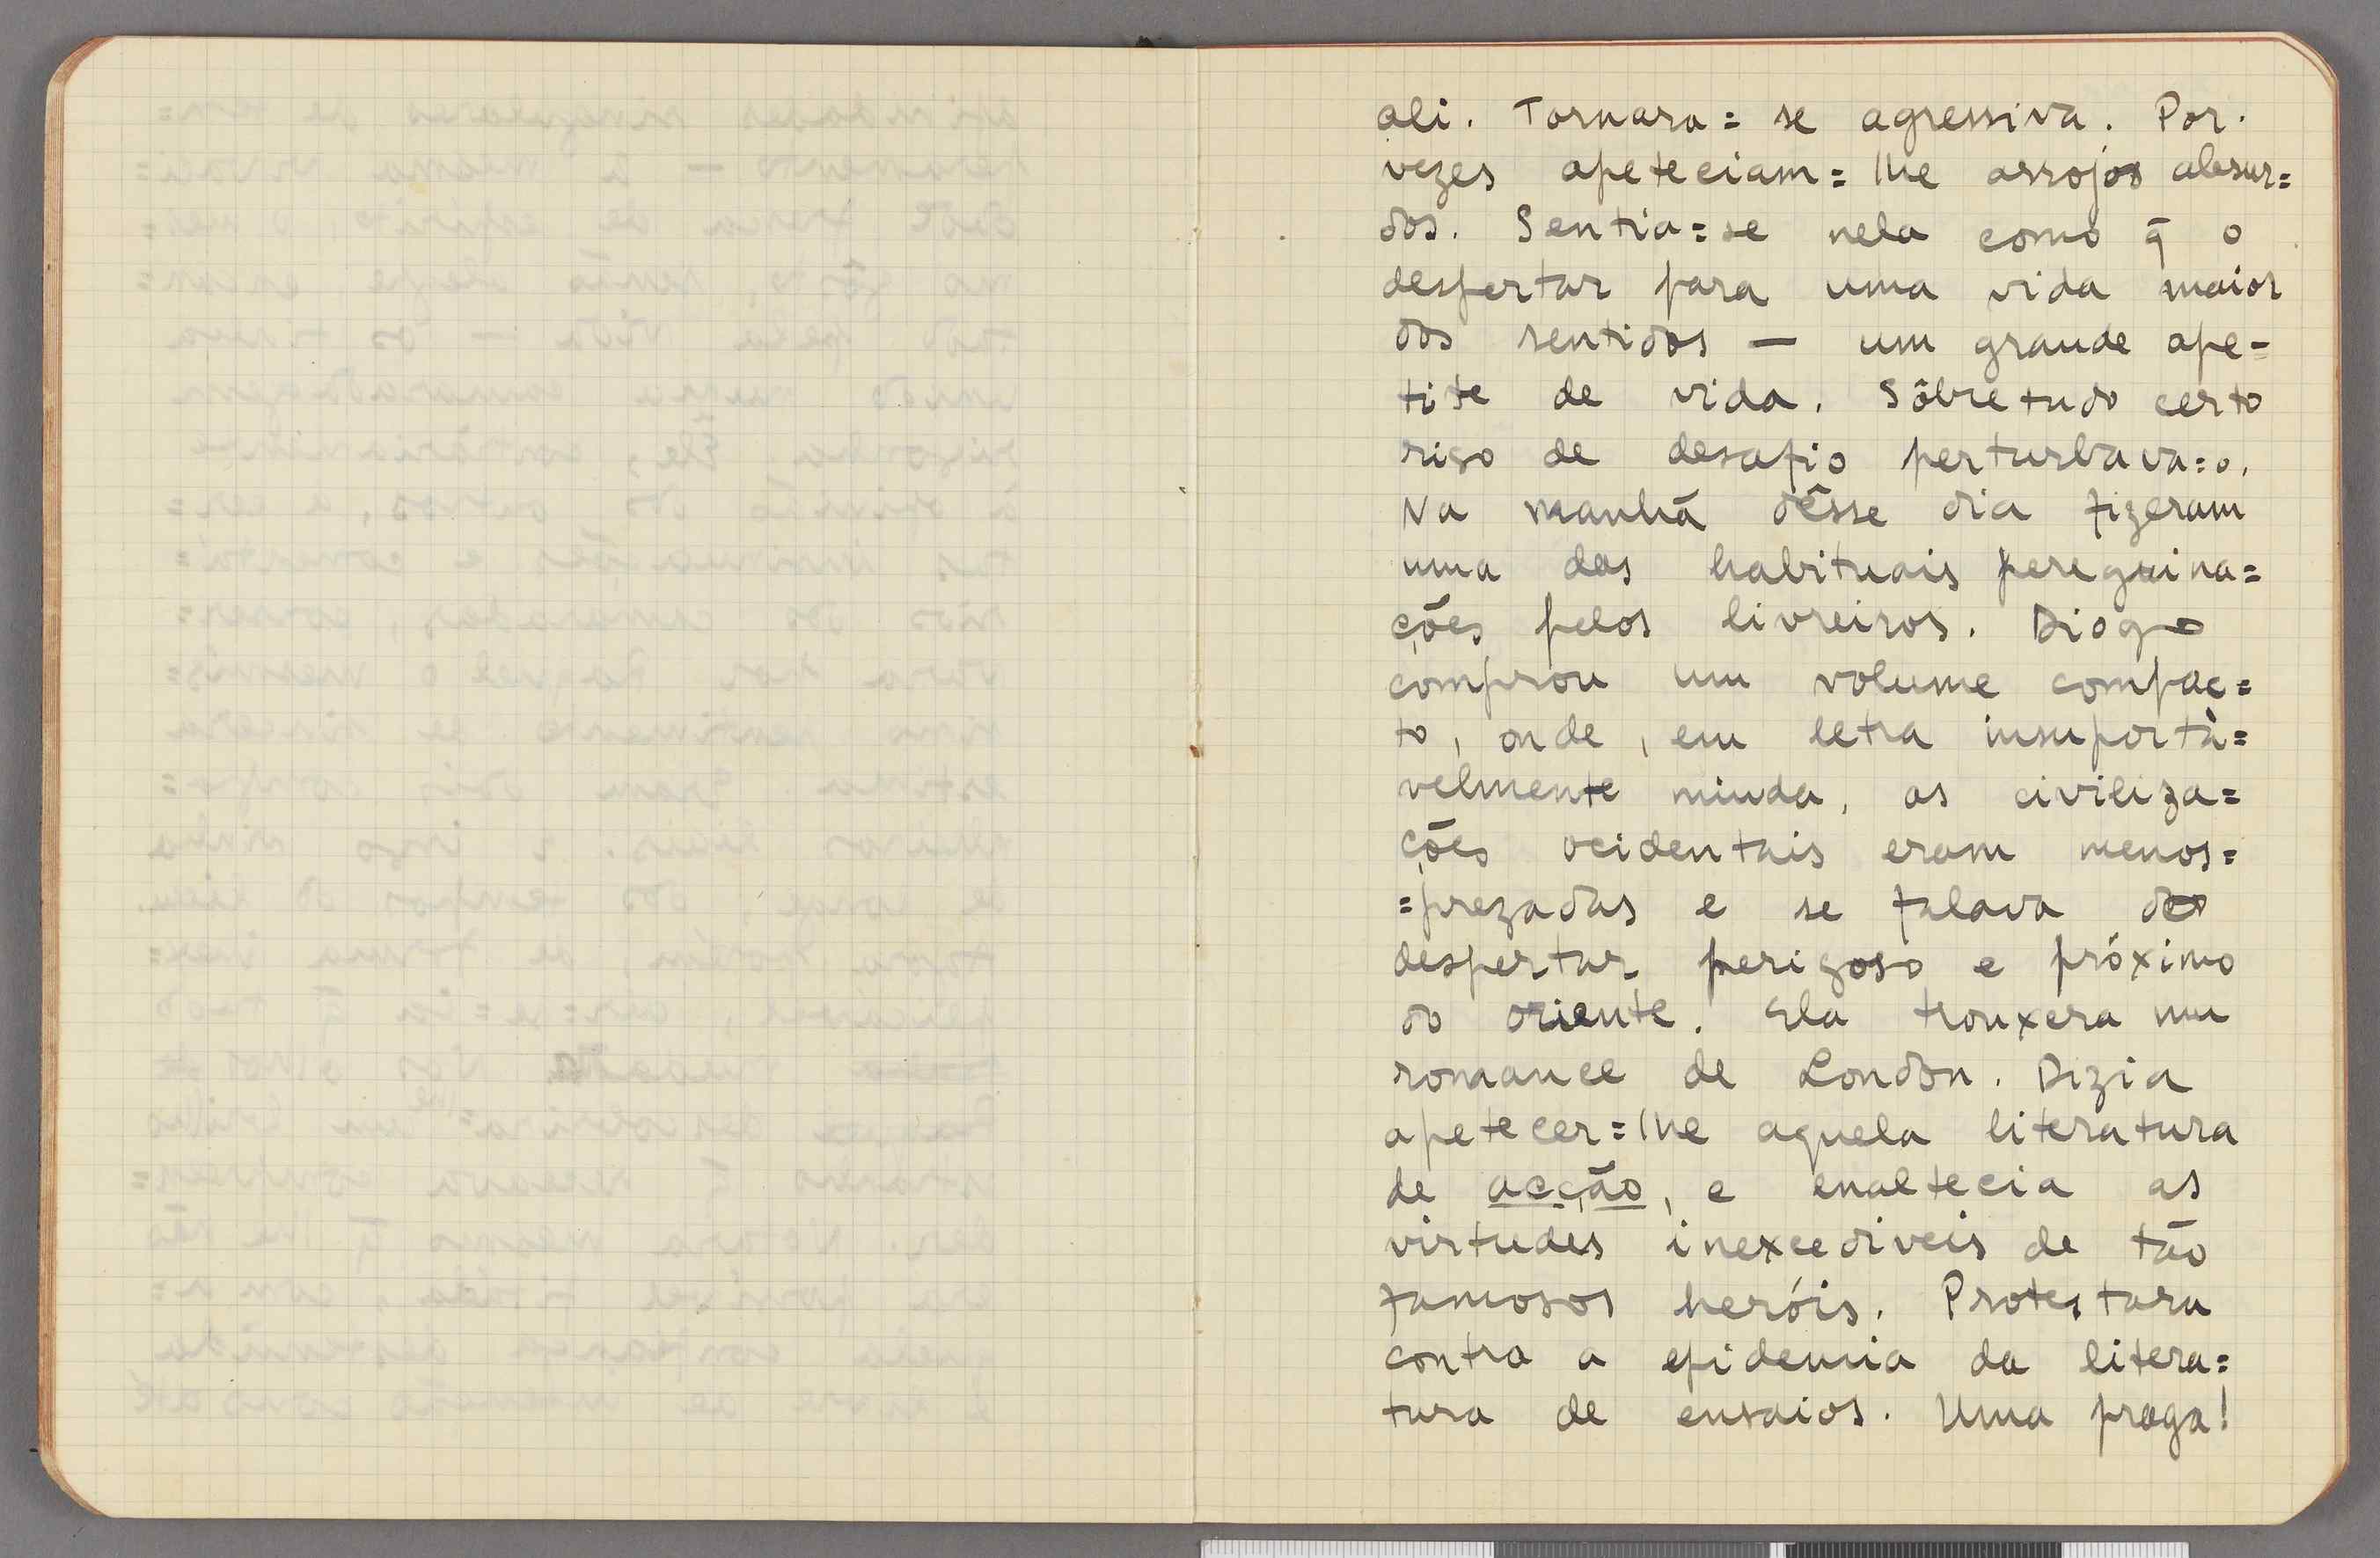 ali. Tornara=se agressiva. Por.
vezes apeteciam=lhe arrojos absur=
dos. Sentia=se nela como q̄ o
despertar para uma vida maior
dos sentidos — um grande ape-
tite de vida. Sôbretudo certo
riso de desafio perturbava=o.
Na manhã dêsse dia fizeram
uma das habituais peregrina=
ções pelos livreiros. Diogo
comprou um volume compac=
to, onde, em letra insuportà=
velmente miuda, as civiliza=
ções ocidentais eram menos=
=prezadas e se falava do
despertar perigoso e próximo
do oriente. Ela trouxera um
romance de London. Dizia
apetecer=lhe aquela literatura
de acção, e enaltecia as
virtudes inexcediveis de tão
famosos heróis. Protestara
contra a epidemia da litera=
tura de ensaios. Uma praga!